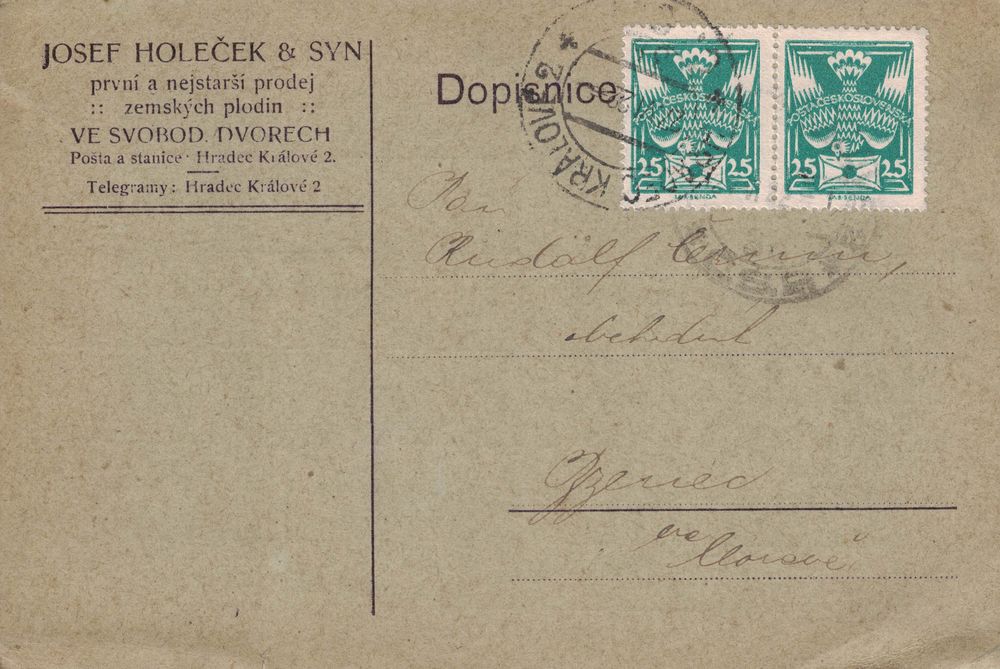 JOSEF HOLEČEK & SYN
první a nejstarší prodej
:: zemských plodin ::
VE SVOBOD. DVORECH
Pošta a stanice · Hradec Králové 2.
Telegramy: Hradec Králové 2
Dopisnice
KRÁLOVÉ 2
POŠTA ČESKOSLOVENSKÁ
25 25
POŠTA ČESKOSLOVENSKÁ
25 25
Pan
Rudolf
obchodník
na Moravě